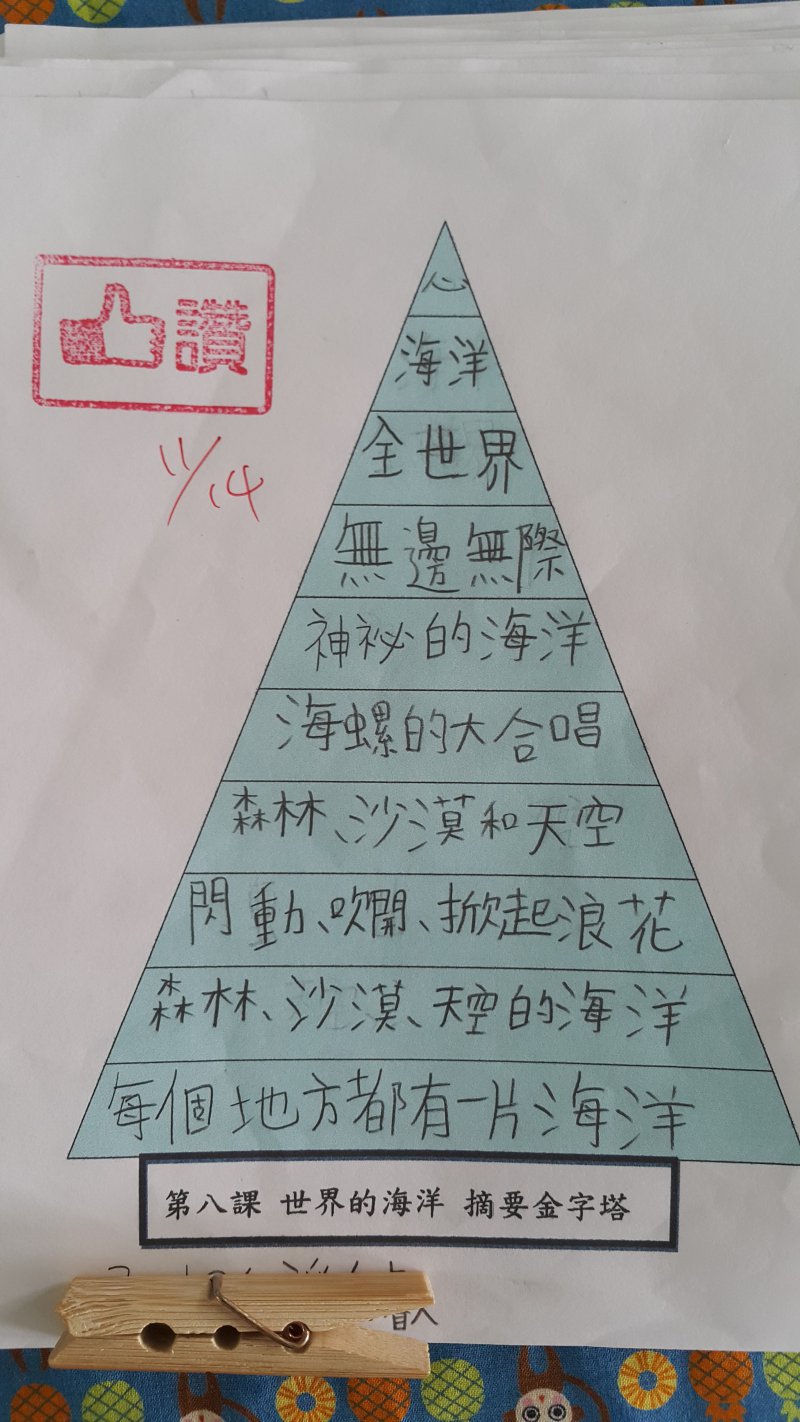 讚
11/14
心
海洋
全世界
無邊無際
神祕的海洋
海螺的大合唱
森林、沙漠和天空
閃動、吹開、掀起浪花
森林、沙漠、天空的海洋
每個地方都有一片海洋
第八課 世界的海洋 摘要金字塔